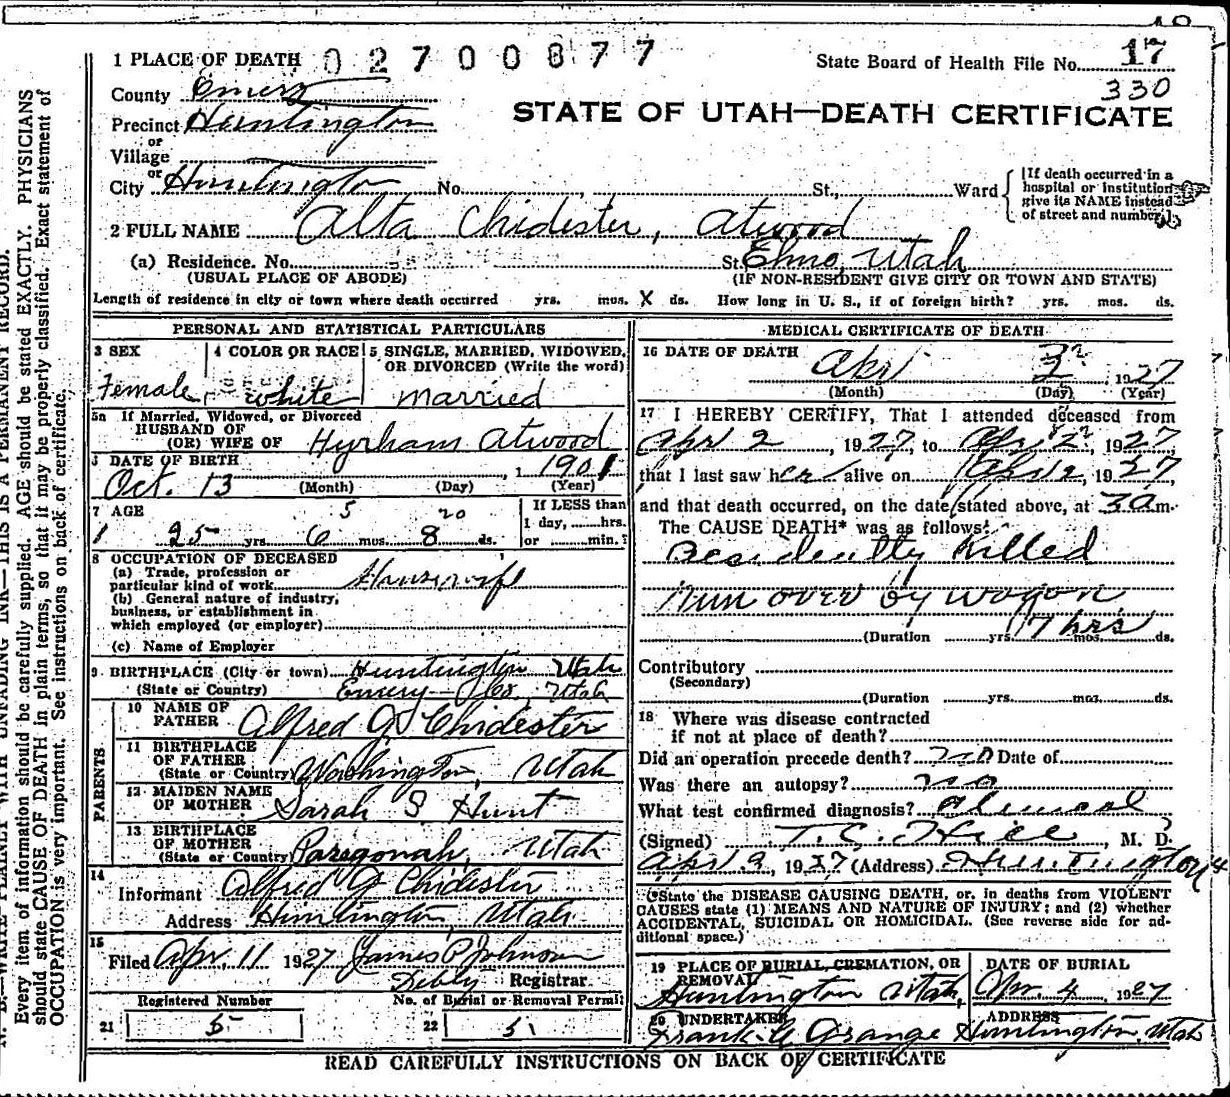 1 PLACE OF DEATH 02700877
State Board of Health File No. 17
330
County Emery
STATE OF UTAH—DEATH CERTIFICATE
Precinct Huntington
or
Village
or
City Huntington No. , St., Ward
(If death occurred in a hospital or institution give its NAME instead of street and number.)
2 FULL NAME Alta Chidester, Atwood
(a) Residence. No. St. Elmo, Utah
(USUAL PLACE OF ABODE) (IF NON-RESIDENT GIVE CITY OR TOWN AND STATE)
Length of residence in city or town where death occurred yrs. mos. X ds. How long in U. S., if of foreign birth? yrs. mos. ds.
PERSONAL AND STATISTICAL PARTICULARS
3 SEX 4 COLOR OR RACE 5 SINGLE, MARRIED, WIDOWED, OR DIVORCED (Write the word)
Female white married
5a If Married, Widowed, or Divorced
HUSBAND OF
(OR) WIFE OF Hyrham Atwood
DATE OF BIRTH
Oct. 13 1901
(Month) (Day) (Year)
7 AGE 5 20 If LESS than
1 day, hrs.
25 yrs 6 mos. 8 ds. or min.?
8 OCCUPATION OF DECEASED
(a) Trade, profession or
particular kind of work Housewife
(b) General nature of industry,
business, or establishment in
which employed (or employer)
(c) Name of Employer
9 BIRTHPLACE (City or town) Huntington Utah
(State or Country) Emery Co, Utah
PARENTS
10 NAME OF FATHER Alfred J Chidester
11 BIRTHPLACE OF FATHER
(State or Country) Washington, Utah
12 MAIDEN NAME OF MOTHER Sarah S Hunt
13 BIRTHPLACE OF MOTHER
(State or Country) Paragonah, Utah
14
Informant Alfred J Chidester
Address Huntington, Utah
15
Filed Apr. 11 1927 James P Johnson
Registrar.
Registered Number No. of Burial or Removal Permit
21 5 22 5
MEDICAL CERTIFICATE OF DEATH
16 DATE OF DEATH
Apr 3 1927
(Month) (Day) (Year)
17 I HEREBY CERTIFY, That I attended deceased from
Apr 2, 1927, to Apr 2, 1927
that I last saw her alive on Apr 2, 1927
and that death occurred, on the date stated above, at 3 a m.
The CAUSE DEATH* was as follows:
Accidentally Killed
Run over by wagon
(Duration yrs. 17 hrs mos. ds.
Contributory
(Secondary)
(Duration yrs. mos. ds.
18 Where was disease contracted
if not at place of death?
Did an operation precede death? no Date of
Was there an autopsy? no
What test confirmed diagnosis?
(Signed) T. C. Hill, M. D.
Apr 1927 (Address) Huntington
(*State the DISEASE CAUSING DEATH, or, in deaths from VIOLENT
CAUSES state (1) MEANS AND NATURE OF INJURY; and (2) whether
ACCIDENTAL, SUICIDAL OR HOMICIDAL. (See reverse side for ad-
ditional space.)
19 PLACE OF BURIAL, CREMATION, OR REMOVAL DATE OF BURIAL
Huntington Utah, Apr. 4, 1927
20 UNDERTAKER ADDRESS
Frank Grange Huntington, Utah
READ CAREFULLY INSTRUCTIONS ON BACK OF CERTIFICATE
N. B.—WRITE PLAINLY WITH UNFADING INK—THIS IS A PERMANENT RECORD.
Every item of information should be carefully supplied. AGE should be stated EXACTLY. PHYSICIANS
should state CAUSE OF DEATH in plain terms, so that it may be properly classified. Exact statement of
OCCUPATION is very important. See instructions on back of certificate.